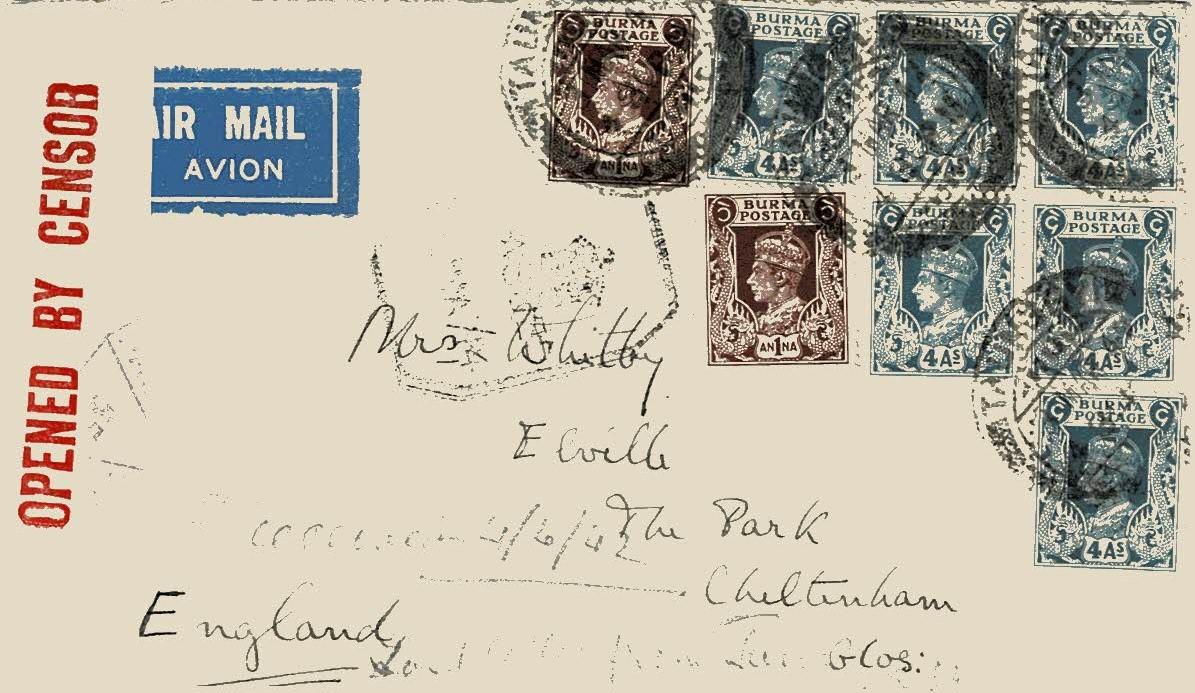 OPENED BY CENSOR
AIR MAIL
AVION
BURMA
POSTAGE
AN1NA
BURMA
POSTAGE
4As
BURMA
POSTAGE
4As
BURMA
POSTAGE
4As
BURMA
POSTAGE
AN1NA
BURMA
POSTAGE
4As
BURMA
POSTAGE
4As
BURMA
POSTAGE
4As
Mrs Whitby
Elville
4/6/42
The Park
Cheltenham
Glos:
England